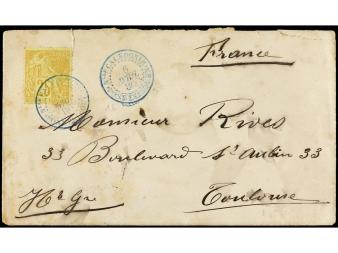 France
Monsieur Rives
33 Boulevard St Aubin 33
Toulouse
Hte Gne